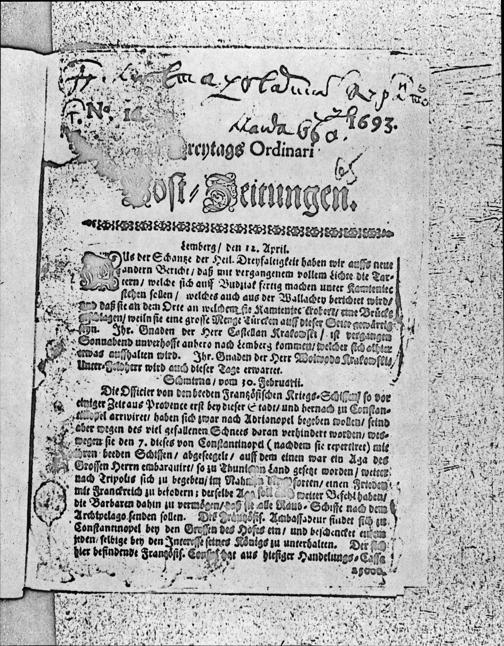 No.
1693.
Freytags Ordinari
Post-Zeitungen.
Lemberg/ den 12. April.
Aus der Schantze der Heil. Dreyfaltigkeit haben wir auffs neue
andern Bericht/ daß mit vergangenem vollem Lichte die Tar-
tern/ welche sich auff Budziak fertig machen unter Kamieniec
stehen sollen/ welches auch aus der Wallachey berichtet wird/
und daß sie an dem Orte an welchem sie Kamieniec erobert/ eine Brücke
schlagen/ weiln sie eine grosse Menge Türcken auff dieser Seite gewärtig
seyn. Ihr. Gnaden der Herr Castellan Krakowski/ ist vergangen
Sonnabend unverhofft anhero nach Lemberg kommen/ welcher sich allhier
etwas auffhalten wird. Ihr. Gnaden der Herr Woiwoda Krakowski,
Unter-Feldherr wird auch dieser Tage erwartet.
Schmirna/ vom 30. Februarii.
Die Officier von den beeden Frantzösischen Kriegs-Schiffen/ so vor
einiger Zeit aus Provence erst bey dieser Stadt/ und hernach zu Constan-
tinopel arriviret/ haben sich zwar nach Adrianopel begeben wollen/ seind
aber wegen des viel gefallenen Schnees daran verhindert worden/ wes-
wegen sie den 7. dieses von Constantinopel (nachdem sie repertiret) mit
ihren beeden Schiffen/ abgesegelt/ auff dem einen war ein Aga des
Grossen Herrn embarquirt/ so zu Land gesetzt worden/ weiter
nach Tripolis sich zu begeben/ im Nahmen einen Frieden
mit Franckreich zu befodern; derselbe Aga soll weiter Befehl haben/
die Barbaren dahin zu vermögen/ daß sie alle Raub-Schiffe nach dem
Archipelago senden sollen. Der Frantzös. Ambassadeur findet sich zu
Constantinopel bey den Grossen des Hofes ein/ und beschencket einen
jeden/ selbige bey den Interesse seines Königs zu unterhalten. Der sich
hier befindende Frantzös. Consul hat aus hiesiger Handelungs-Cassa